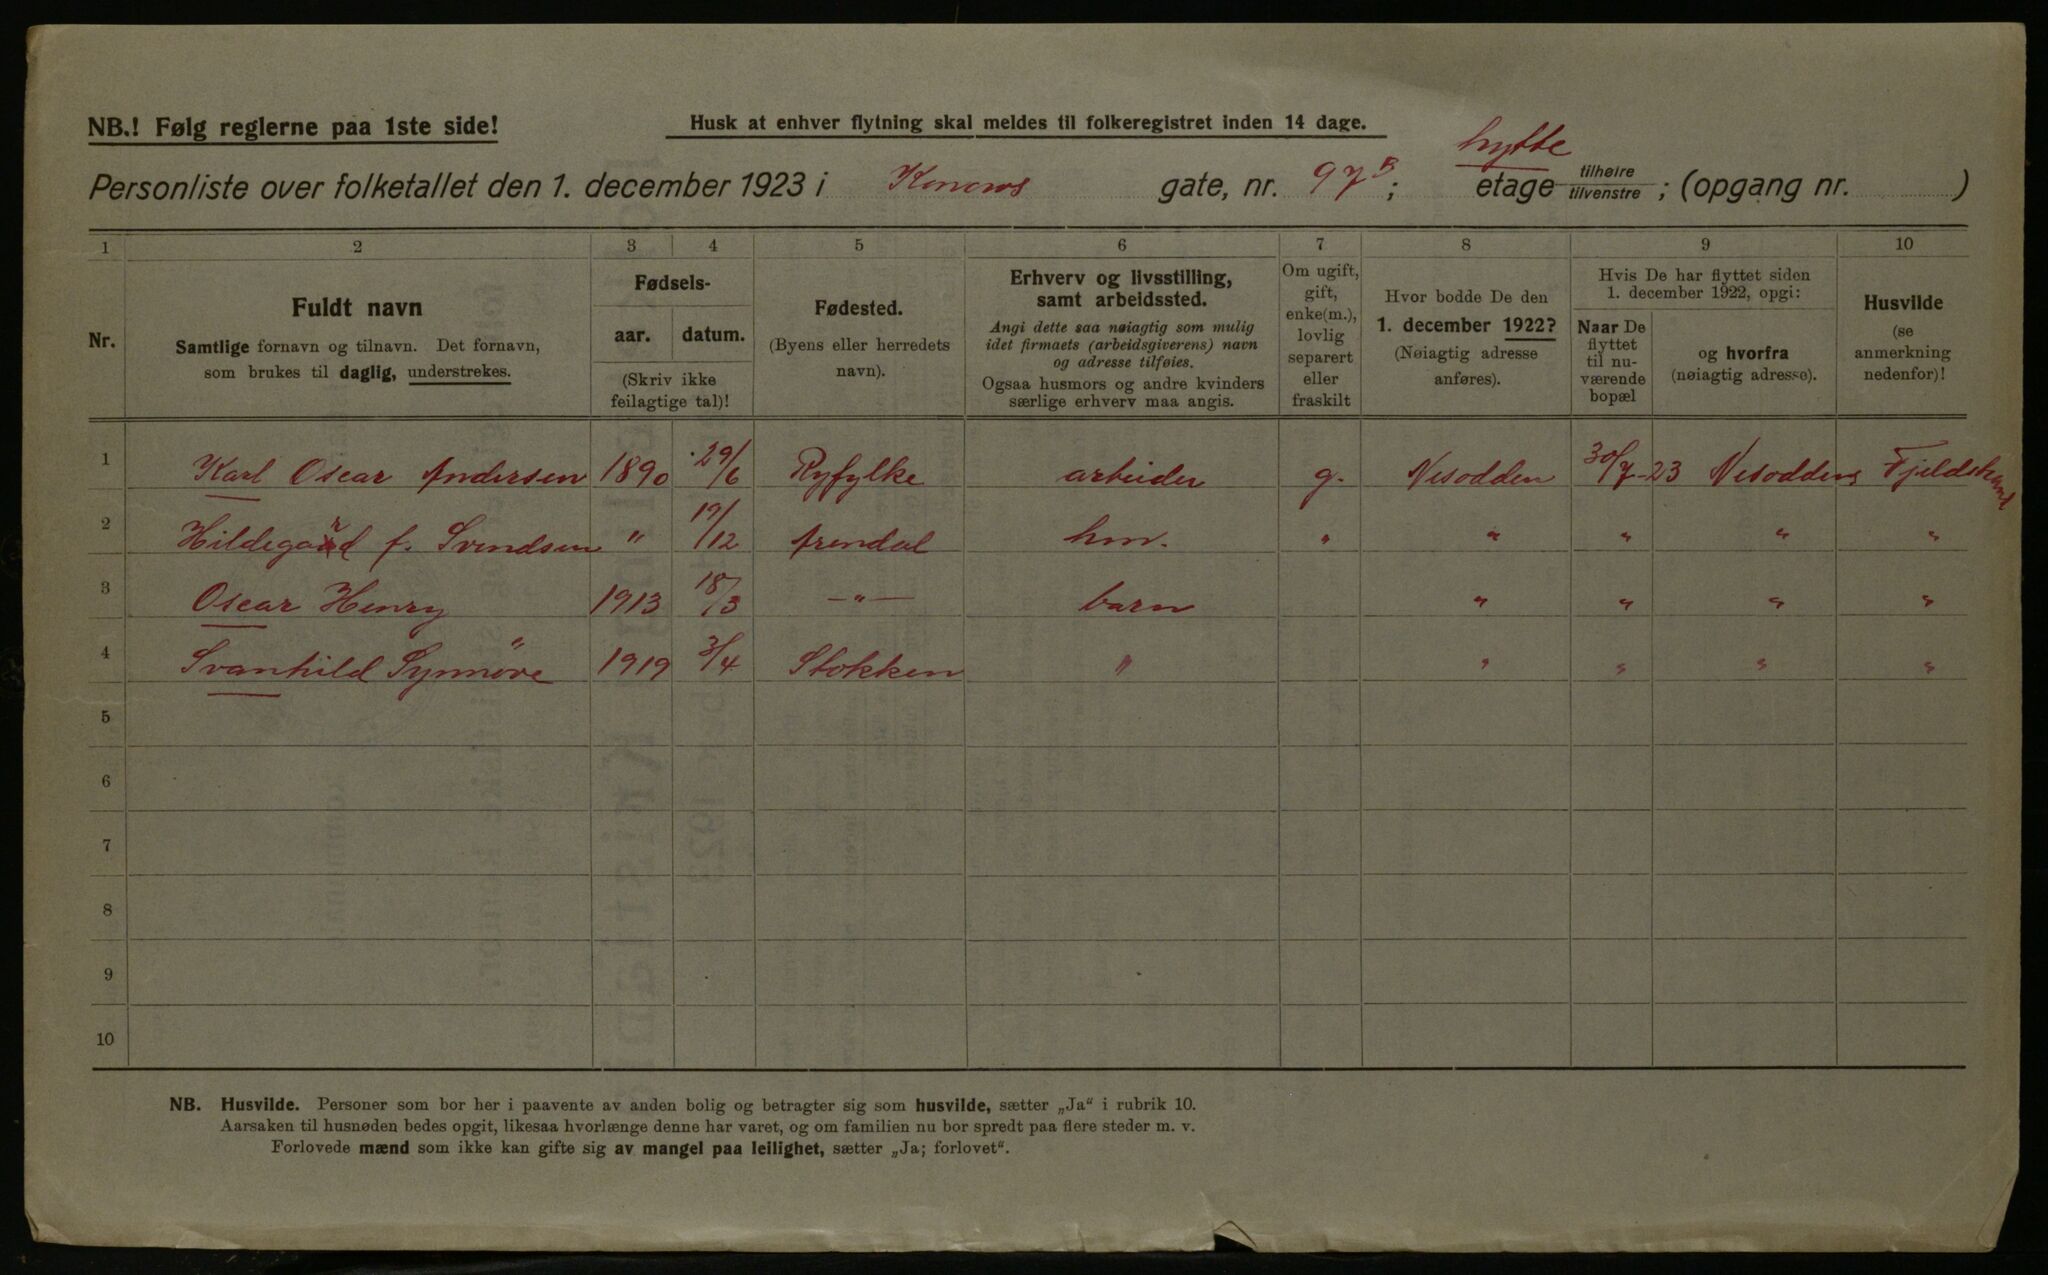 NB.! Følg reglerne paa 1ste side!
Husk at enhver flytning skal meldes til folkeregistret inden 14 dage.
hytte
Personliste over folketallet den 1. december 1923 i Konows gate, nr. 97B; etage tilhøire tilvenstre; (opgang nr. )
1 2 3 4 5 6 7 8 9 10
Nr.
Fuldt navn
Samtlige fornavn og tilnavn. Det fornavn,
som brukes til daglig, understrekes.
Fødsels-
aar. datum.
(Skriv ikke
feilagtige tal)!
Fødested.
(Byens eller herredets
navn).
Erhverv og livsstilling,
samt arbeidssted.
Angi dette saa nøiagtig som mulig
idet firmaets (arbeidsgiverens) navn
og adresse tilføies.
Ogsaa husmors og andre kvinders
særlige erhverv maa angis.
Om ugift,
gift,
enke(m.),
lovlig
separert
eller
fraskilt
Hvor bodde De den
1. december 1922?
(Nøiagtig adresse
anføres).
Hvis De har flyttet siden
1. december 1922, opgi:
Naar De
flyttet
til nu-
værende
bopæl
og hvorfra
(nøiagtig adresse).
Husvilde
(se
anmerkning
nedenfor)!
1 Karl Oscar Andersen 1890 29/6 Ryfylke arbeider g. Nesodden 30/7-23 Nesodden Fjeldstrand
2 Hildegard f. Svendsen " 19/12 Arendal hm. " " " " "
3 Oscar Henry 1913 18/3 —"— barn " " " "
4 Svanhild Synnöve 1919 3/4 Stokken " " " " "
5
6
7
8
9
10
NB. Husvilde. Personer som bor her i paavente av anden bolig og betragter sig som husvilde, sætter „Ja“ i rubrik 10.
Aarsaken til husnøden bedes opgit, likesaa hvorlænge denne har varet, og om familien nu bor spredt paa flere steder m. v.
Forlovede mænd som ikke kan gifte sig av mangel paa leilighet, sætter „Ja; forlovet“.